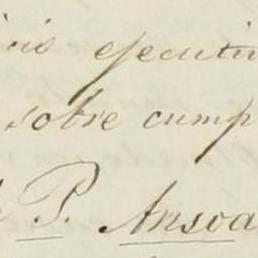 icio ejecutiv
sobre cump
P. Ansoa